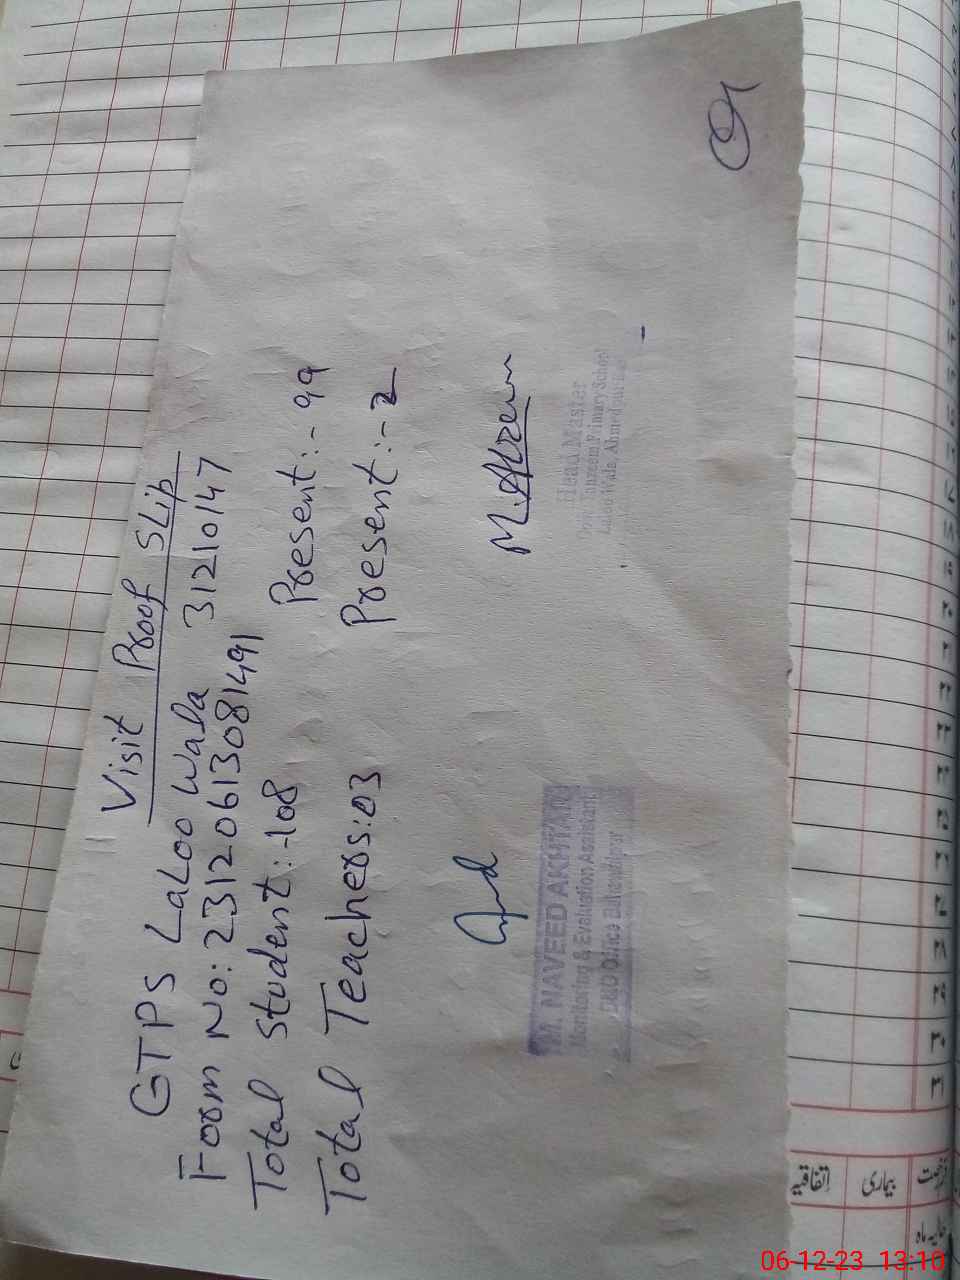 Visit Proof Slip
GTPS LaLoo Wala 31210147
Form No: 23120613081491
Total Student:-108 Present:- 99
Total Teachers:03 Present:- 2
M. Akram
M. NAVEED AKHTAR
Monitoring & Evaluation Assistant
Office Bahawalpur
Head Master
Primary School
Laloo Wala, Ahmedpur
اتفاقیہ
بیماری
06-12-23 13:10